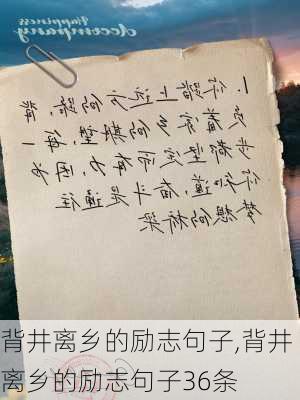 Happiness
accompany
踏上远方的路，背
负着家乡的期望，每一
步都坚定有力，因为
知道，奋斗是通往
梦想的桥梁
背井离乡的励志句子,背井
离乡的励志句子36条